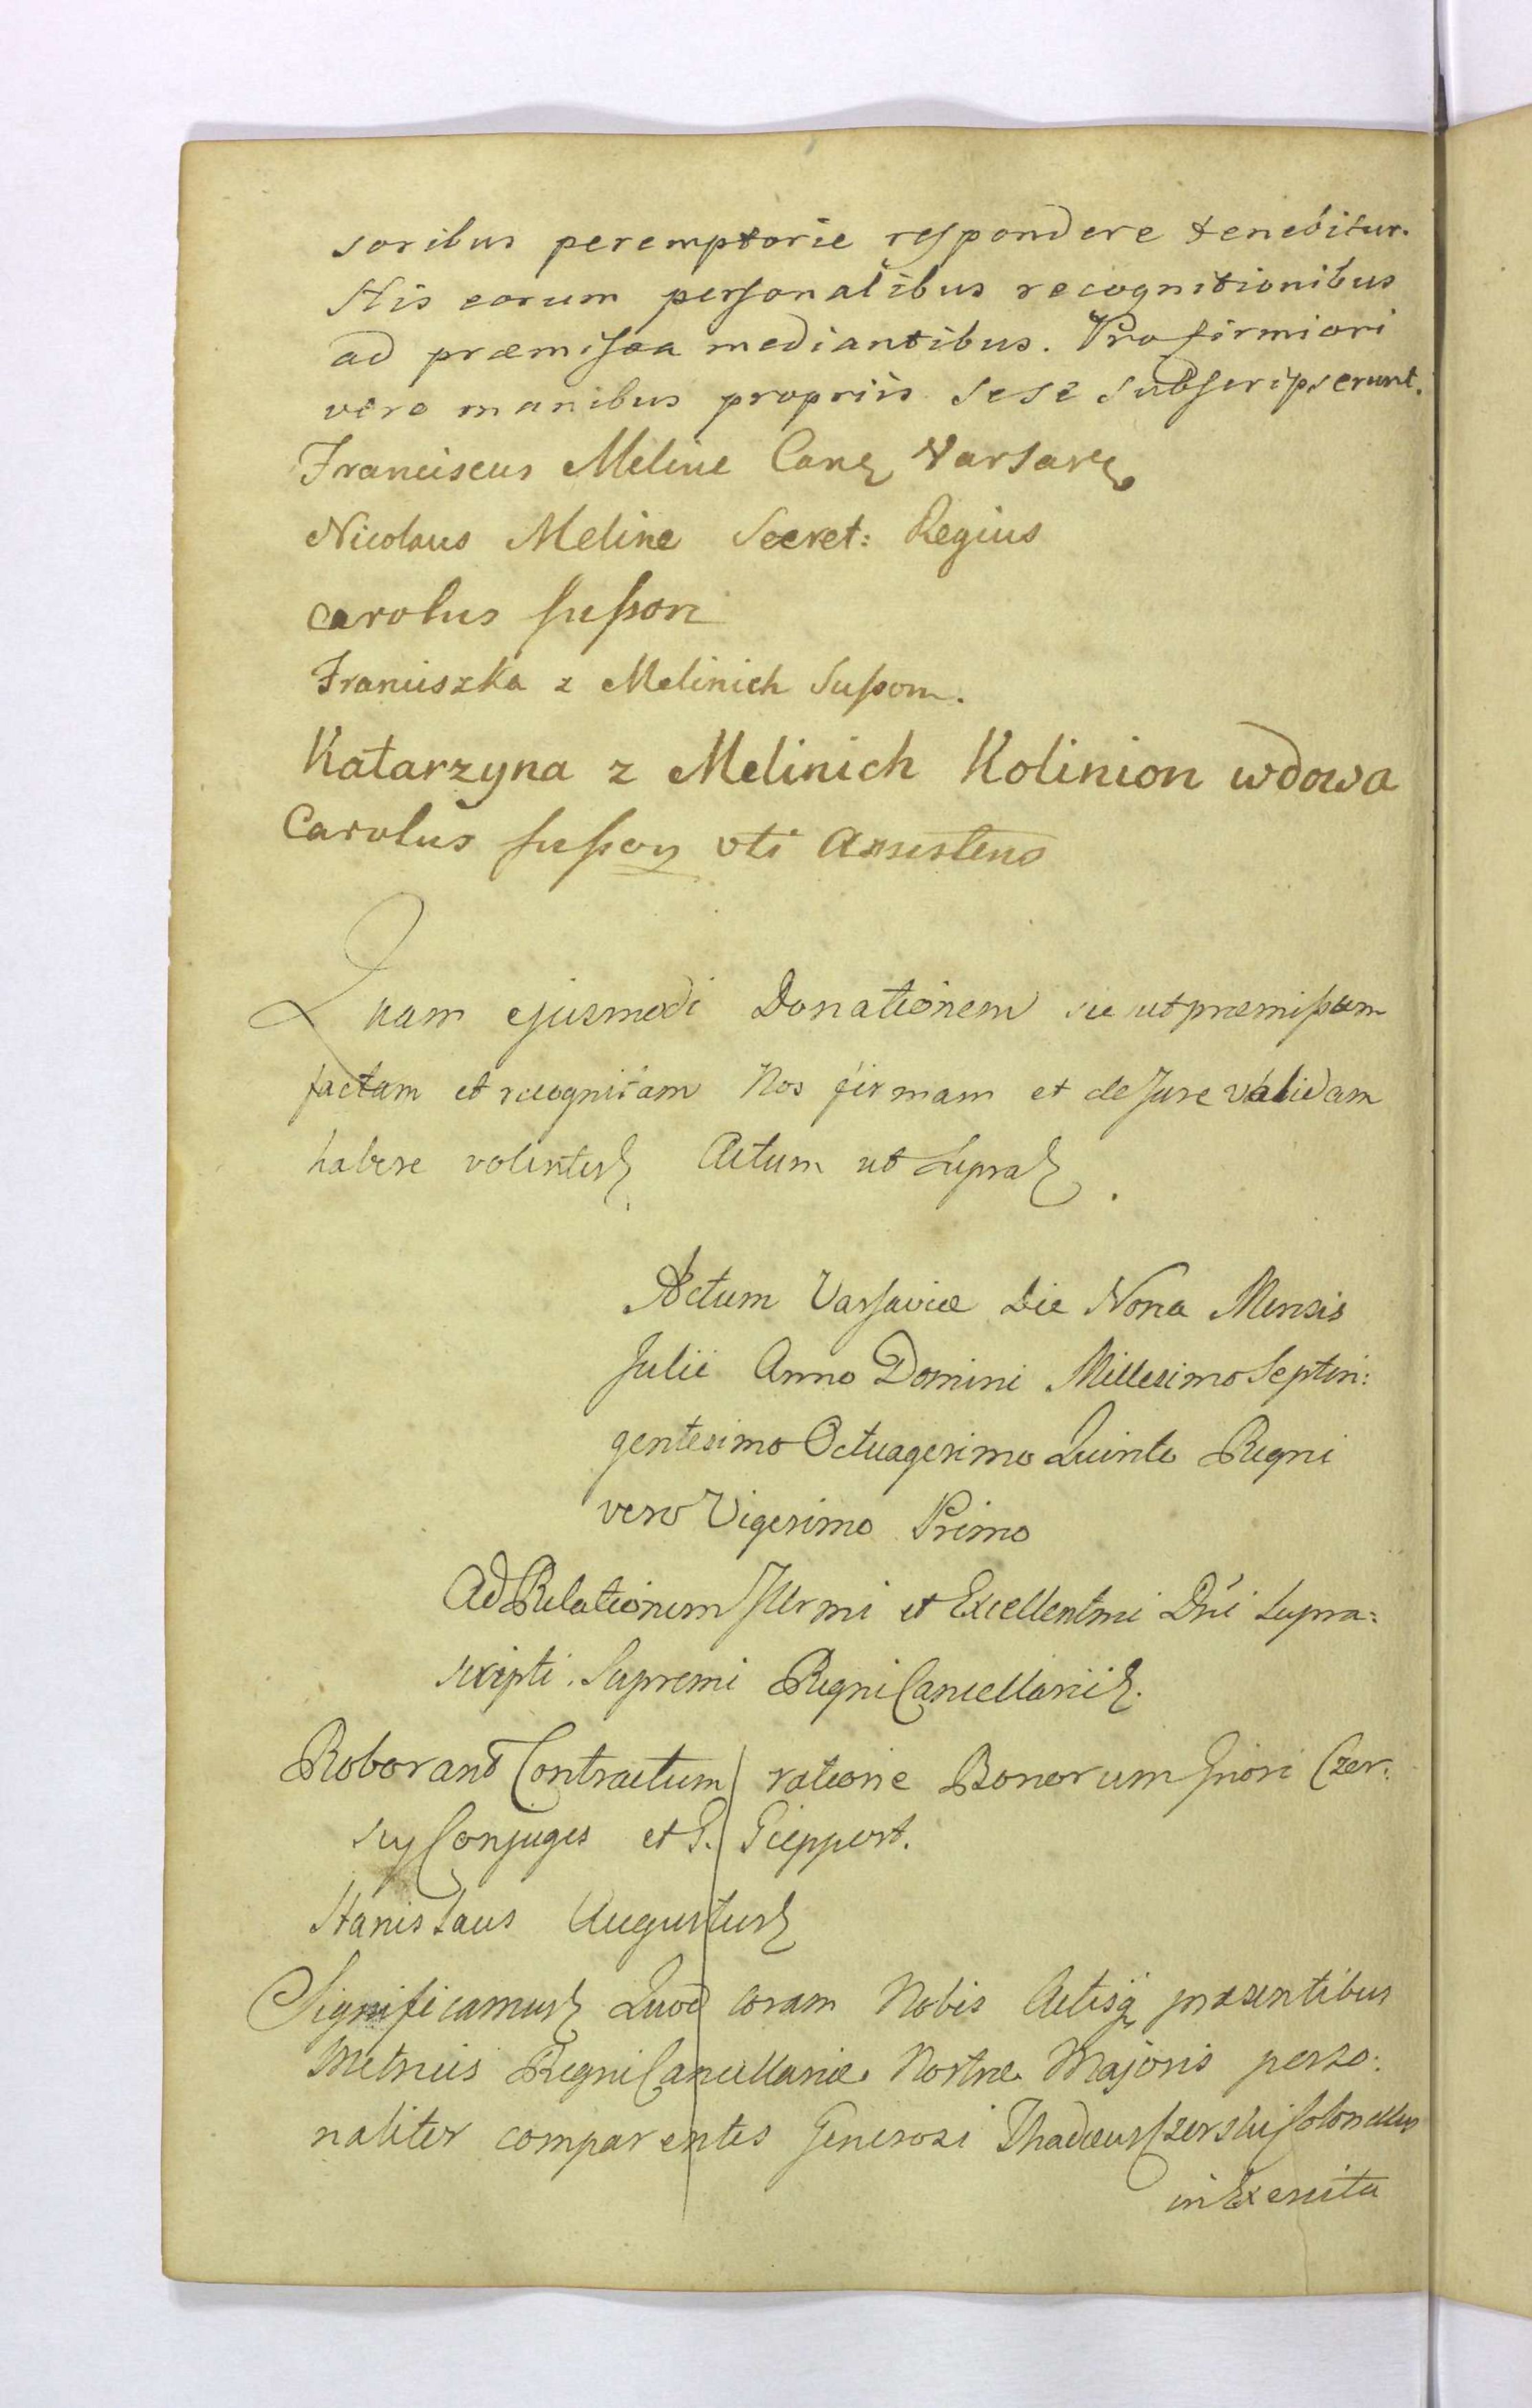 soribus peremptorie respondere tenebitur.
His eorum personalibus recognitionibus
ad præmissa mediantibus. Pro firmiori
vero manibus propriis sese subscripserunt.
Franciscus Meline Can Varsav
Nicolaus Meline Secret: Regius
Carolus Susson
Franciszka z Melinich Susson.
Katarzyna z Melinich Kolinion wdowa
Carolus Susson uti Assistens
Quam ejusmodi Donationem sic ut præmissum
factam et recognitam Nos firmam et de Jure validam
habere volentes Actum ut Supra.
Actum Varsaviæ Die Nona Mensis
Julii Anno Domini Millesimo Septin:
gentesimo Octuagesimo Quinto Regni
vero Vigesimo Primo
Ad Relationem Illrmi et Excellentmi Dni Supra:
scripti Supremi Regni Cancellarii.
Roborand Contractum ratione Bonorum Gniori Czer:
scy Conjuges et P. Pieppert.
Stanislaus Augustus
Significamus Quod coram Nobis Actisq præsentibus
Metricis Regni Cancellariæ Nostræ Majoris perso:
naliter comparentes Generosi Thadæus Czerski Colonellus
in Exercitu